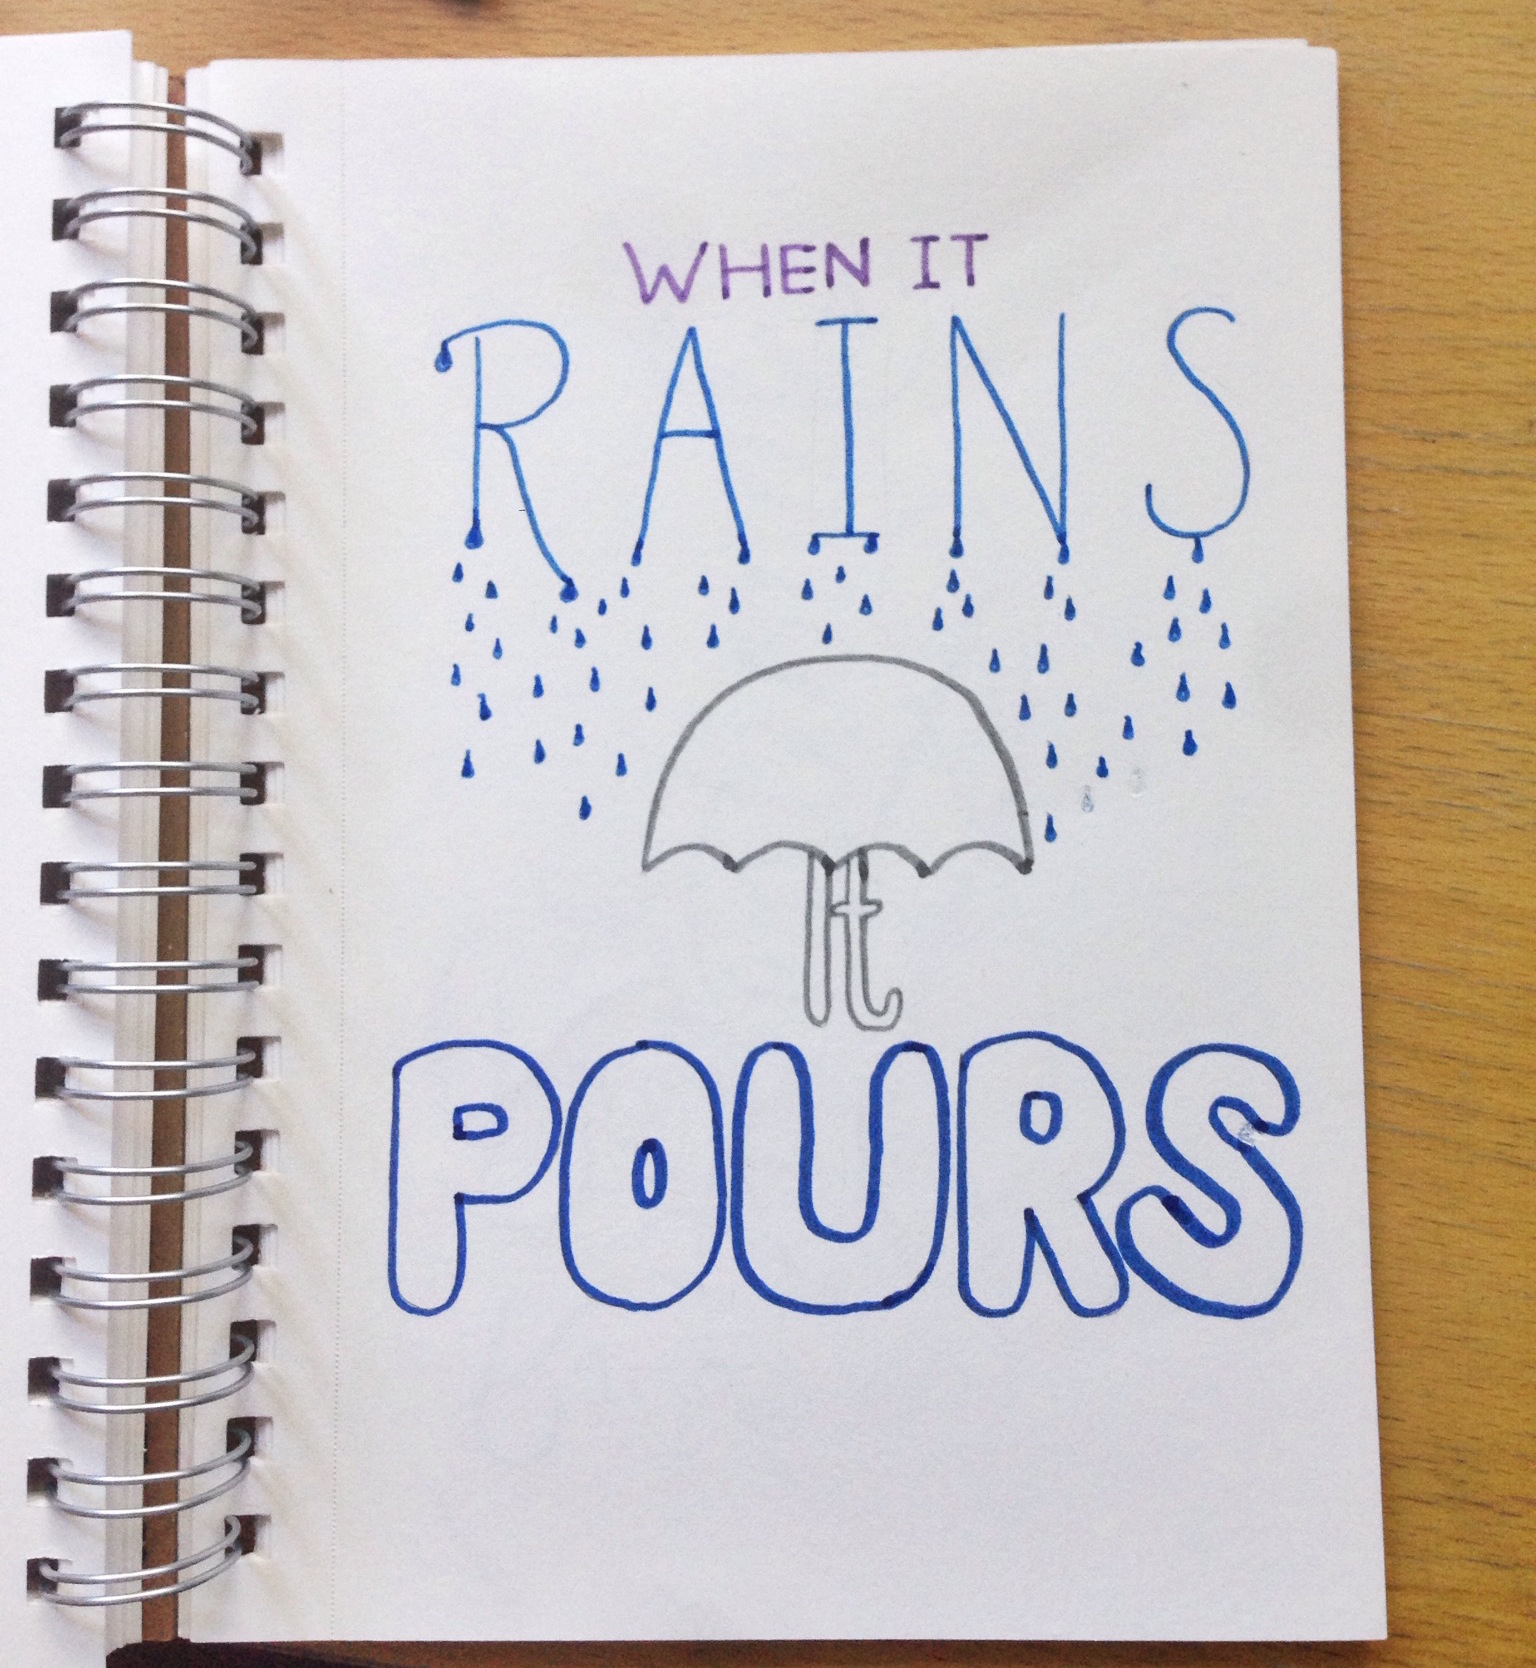 WHEN IT
RAINS
it
POURS